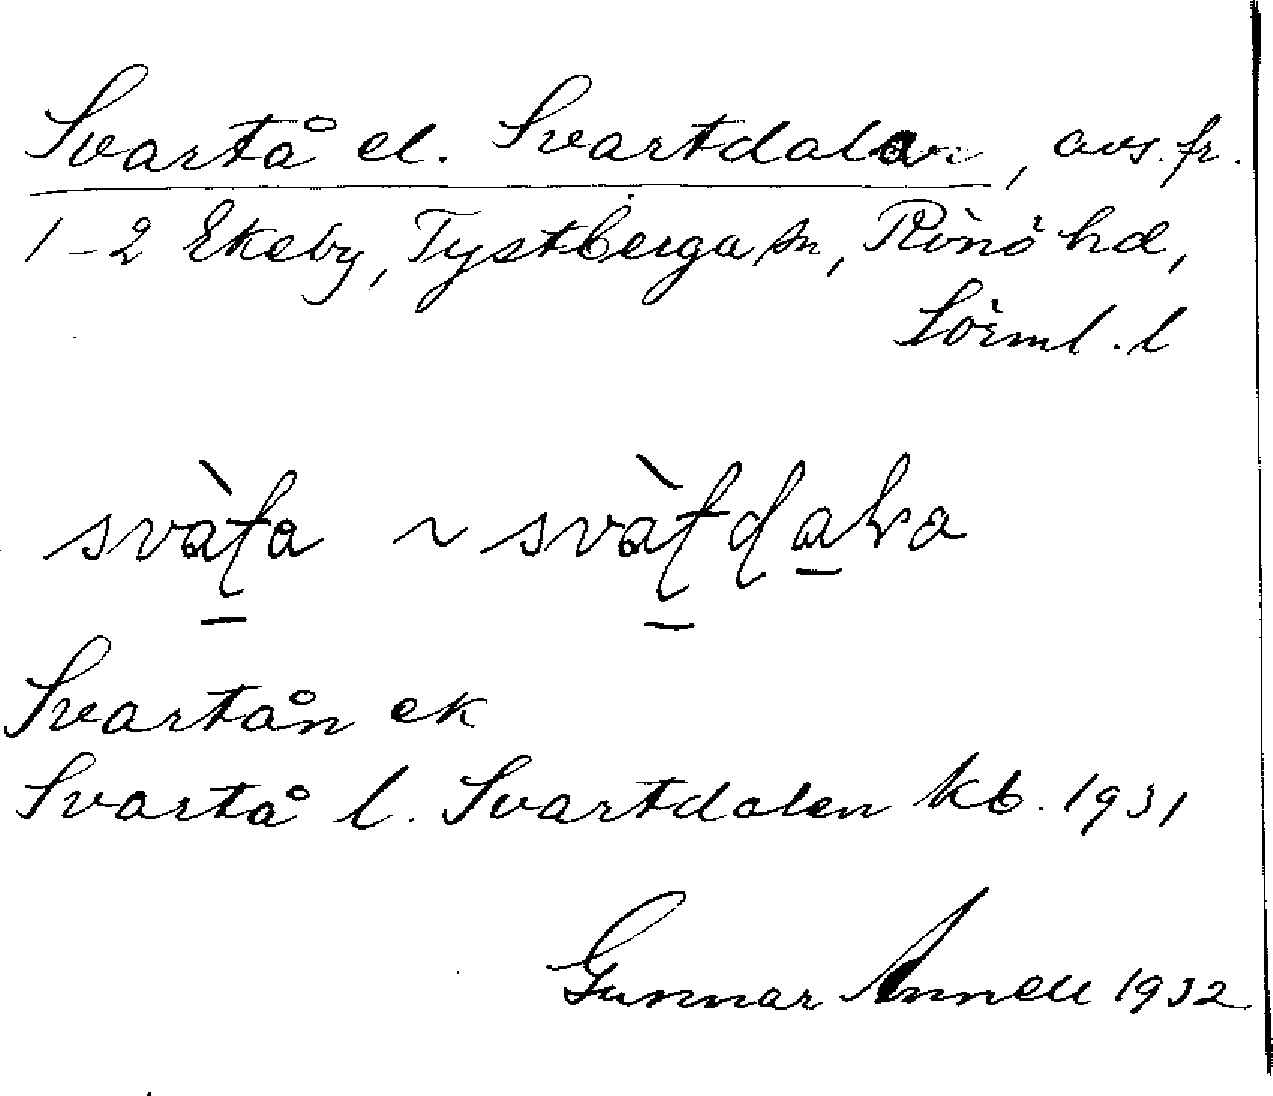 Svartå el. Svartdala, avs. fr.
1-2 Ekeby, Tystberga sn, Rönö hd,
Sörml. l
svàʈa ~ svàʈɖaka
Svartån ek
Svartå l. Svartdalen kb. 1931
Gunnar Annell 1932